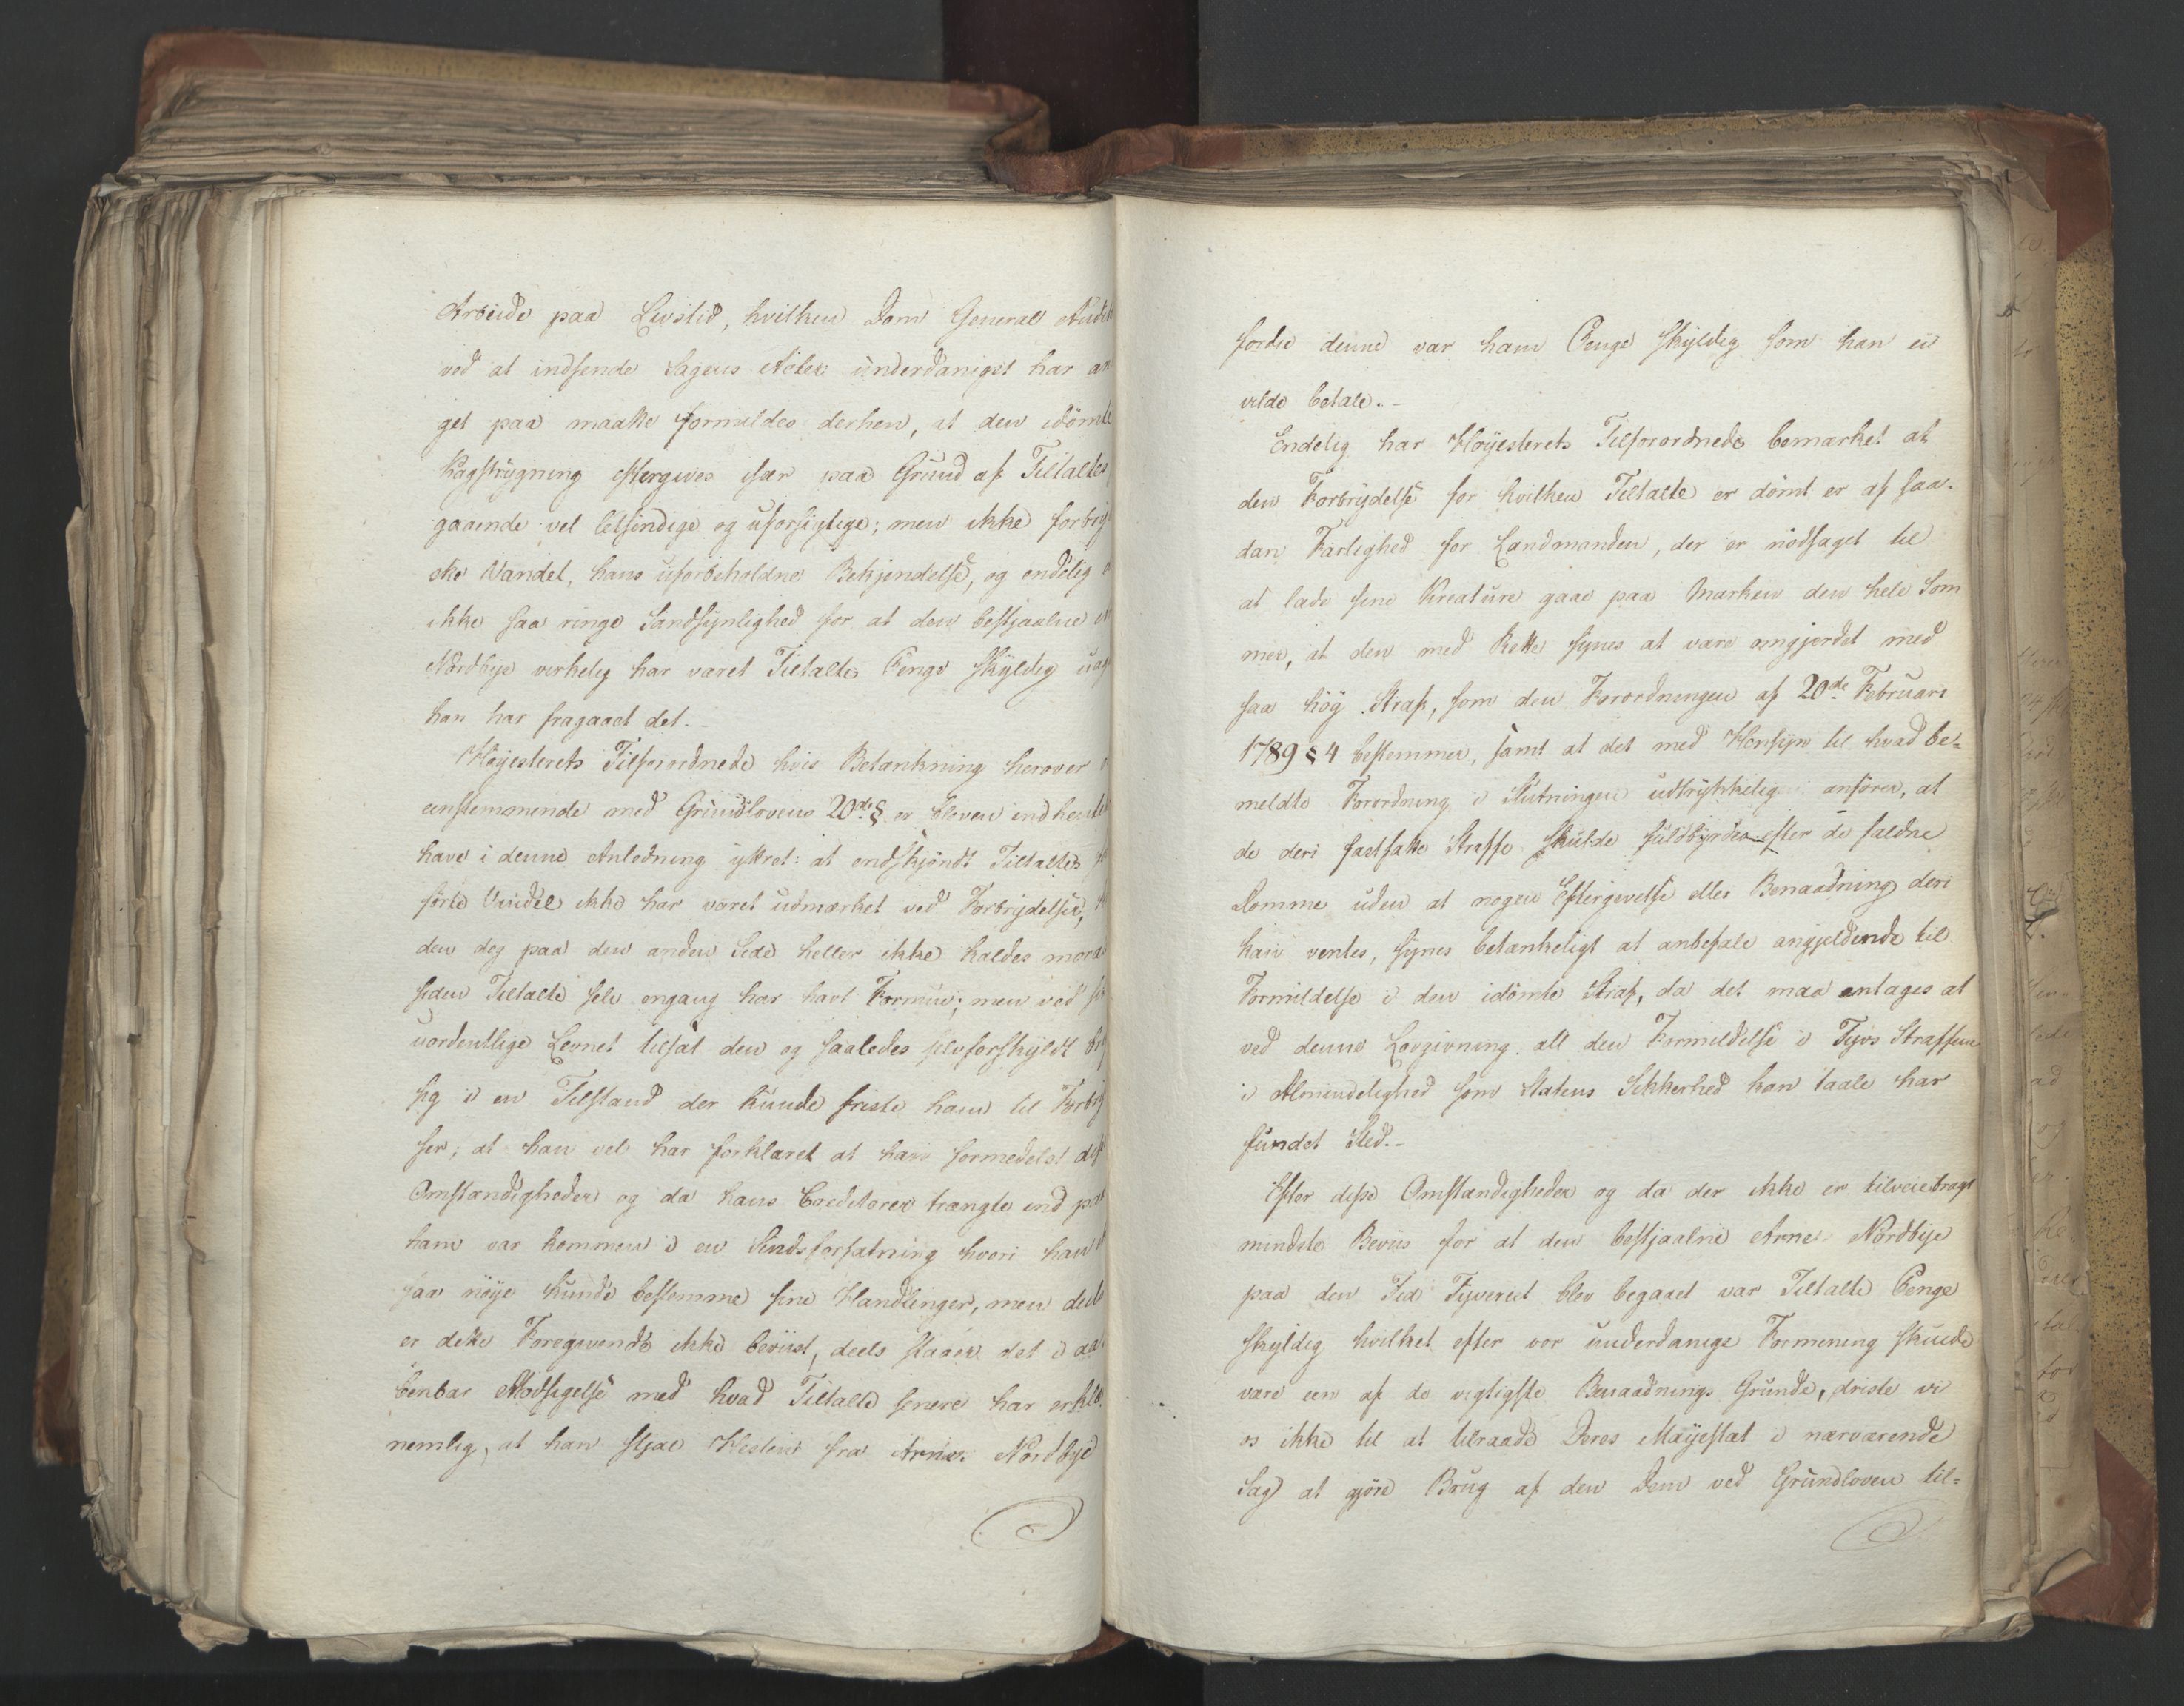 Arbeide paa Livstid, hvilken Dom General Audit
ved at indsende Sagens Acter underdanigst har an
get paa maatte formildes derhen, at den idömte
Kagstrygning eftergives især paa Grund af Tiltaltes
gaaende vel letsindige og uforsigtige; men ikke forbry
ske Vandel, hans uforbeholdne Bekjendelse, og endelig
ikke saa ringe Sandsynlighed for at den bestjaalne
Nordbye virkelig har været Tiltalte Penge skyldig uag
han har fragaaet det. -
Höyesterets Tilforordnede hvis Betænkning herover
eenstemmende med Grundlovens 20de § er bleven indhentet
have i denne Anledning yttret: at endskjöndt Tiltaltes
förte Vandel ikke har været udmærket ved Forbrydelser,
den dog paa den anden Side heller ikke kaldes mora
siden Tiltalte selv engang har havt Formue; men ved
uordentlige Levnet tilsat den og saaledes selvforskyldt
sig i en Tilstand der kunde friste ham til Forbry
ser; at han vel har forklaret at han formedelst disse
Omstændigheder og da hans Creditorer trængte ind paa
ham var kommen i en Sindsforfatning hvori han
saa nöye kunde bestemme sine Handlinger, men deels
er dette Foregivende ikke beviist, deels staaer det i aa
benbar Modsigelse med hvad Tiltalte senere har erklæ
nemlig, at han stjal Hesten fra Arne Nordbye
fordi denne var ham Penge skyldig som han ei
vilde betale. -
Endelig har Höyesterets Tilforordnede bemærket at
den Forbrydelse for hvilken Tiltalte er dömt er af saa-
dan Farlighed for Landmanden, der er nödsaget til
at lade sine Kreature gaae paa Marken den hele Som
mer, at den med Rette synes at være omgjerdet med
saa höy Straf, som den Forordningen af 20de Februari
1789 § 4 bestemmer, samt at det med Hensyn til hvad be-
meldte Forordning i Slutningen udtrykkelig anförer, at
de deri fastsatte Straffe skulde fuldbyrdes efter de faldne
Domme uden at nogen Eftergivelse eller Benaadning deri
kan ventes, synes betænkeligt at anbefale angjeldende til
Formildelse i den idömte Straf, da det maa antages at
ved denne Lovgivning all den Formildelse i Tyvs Straffen
i Almindelighed som Statens Sikkerhed kan taale har
fundet Sted. -
Efter disse Omstændigheder og da der ikke er tilveiebragt
mindste Beviis for at den bestjaalne Arne Nordbye
paa den Tid Tyveriet blev begaaet var Tiltalte Penge
skyldig hvilket efter vor underdanige Formening skulde
være een af de vigtigste Benaadnings Grunde, driste vi
os ikke til at tilraade Deres Majestæt i nærværende
Sag at gjöre Brug af den Dem ved Grundloven til-